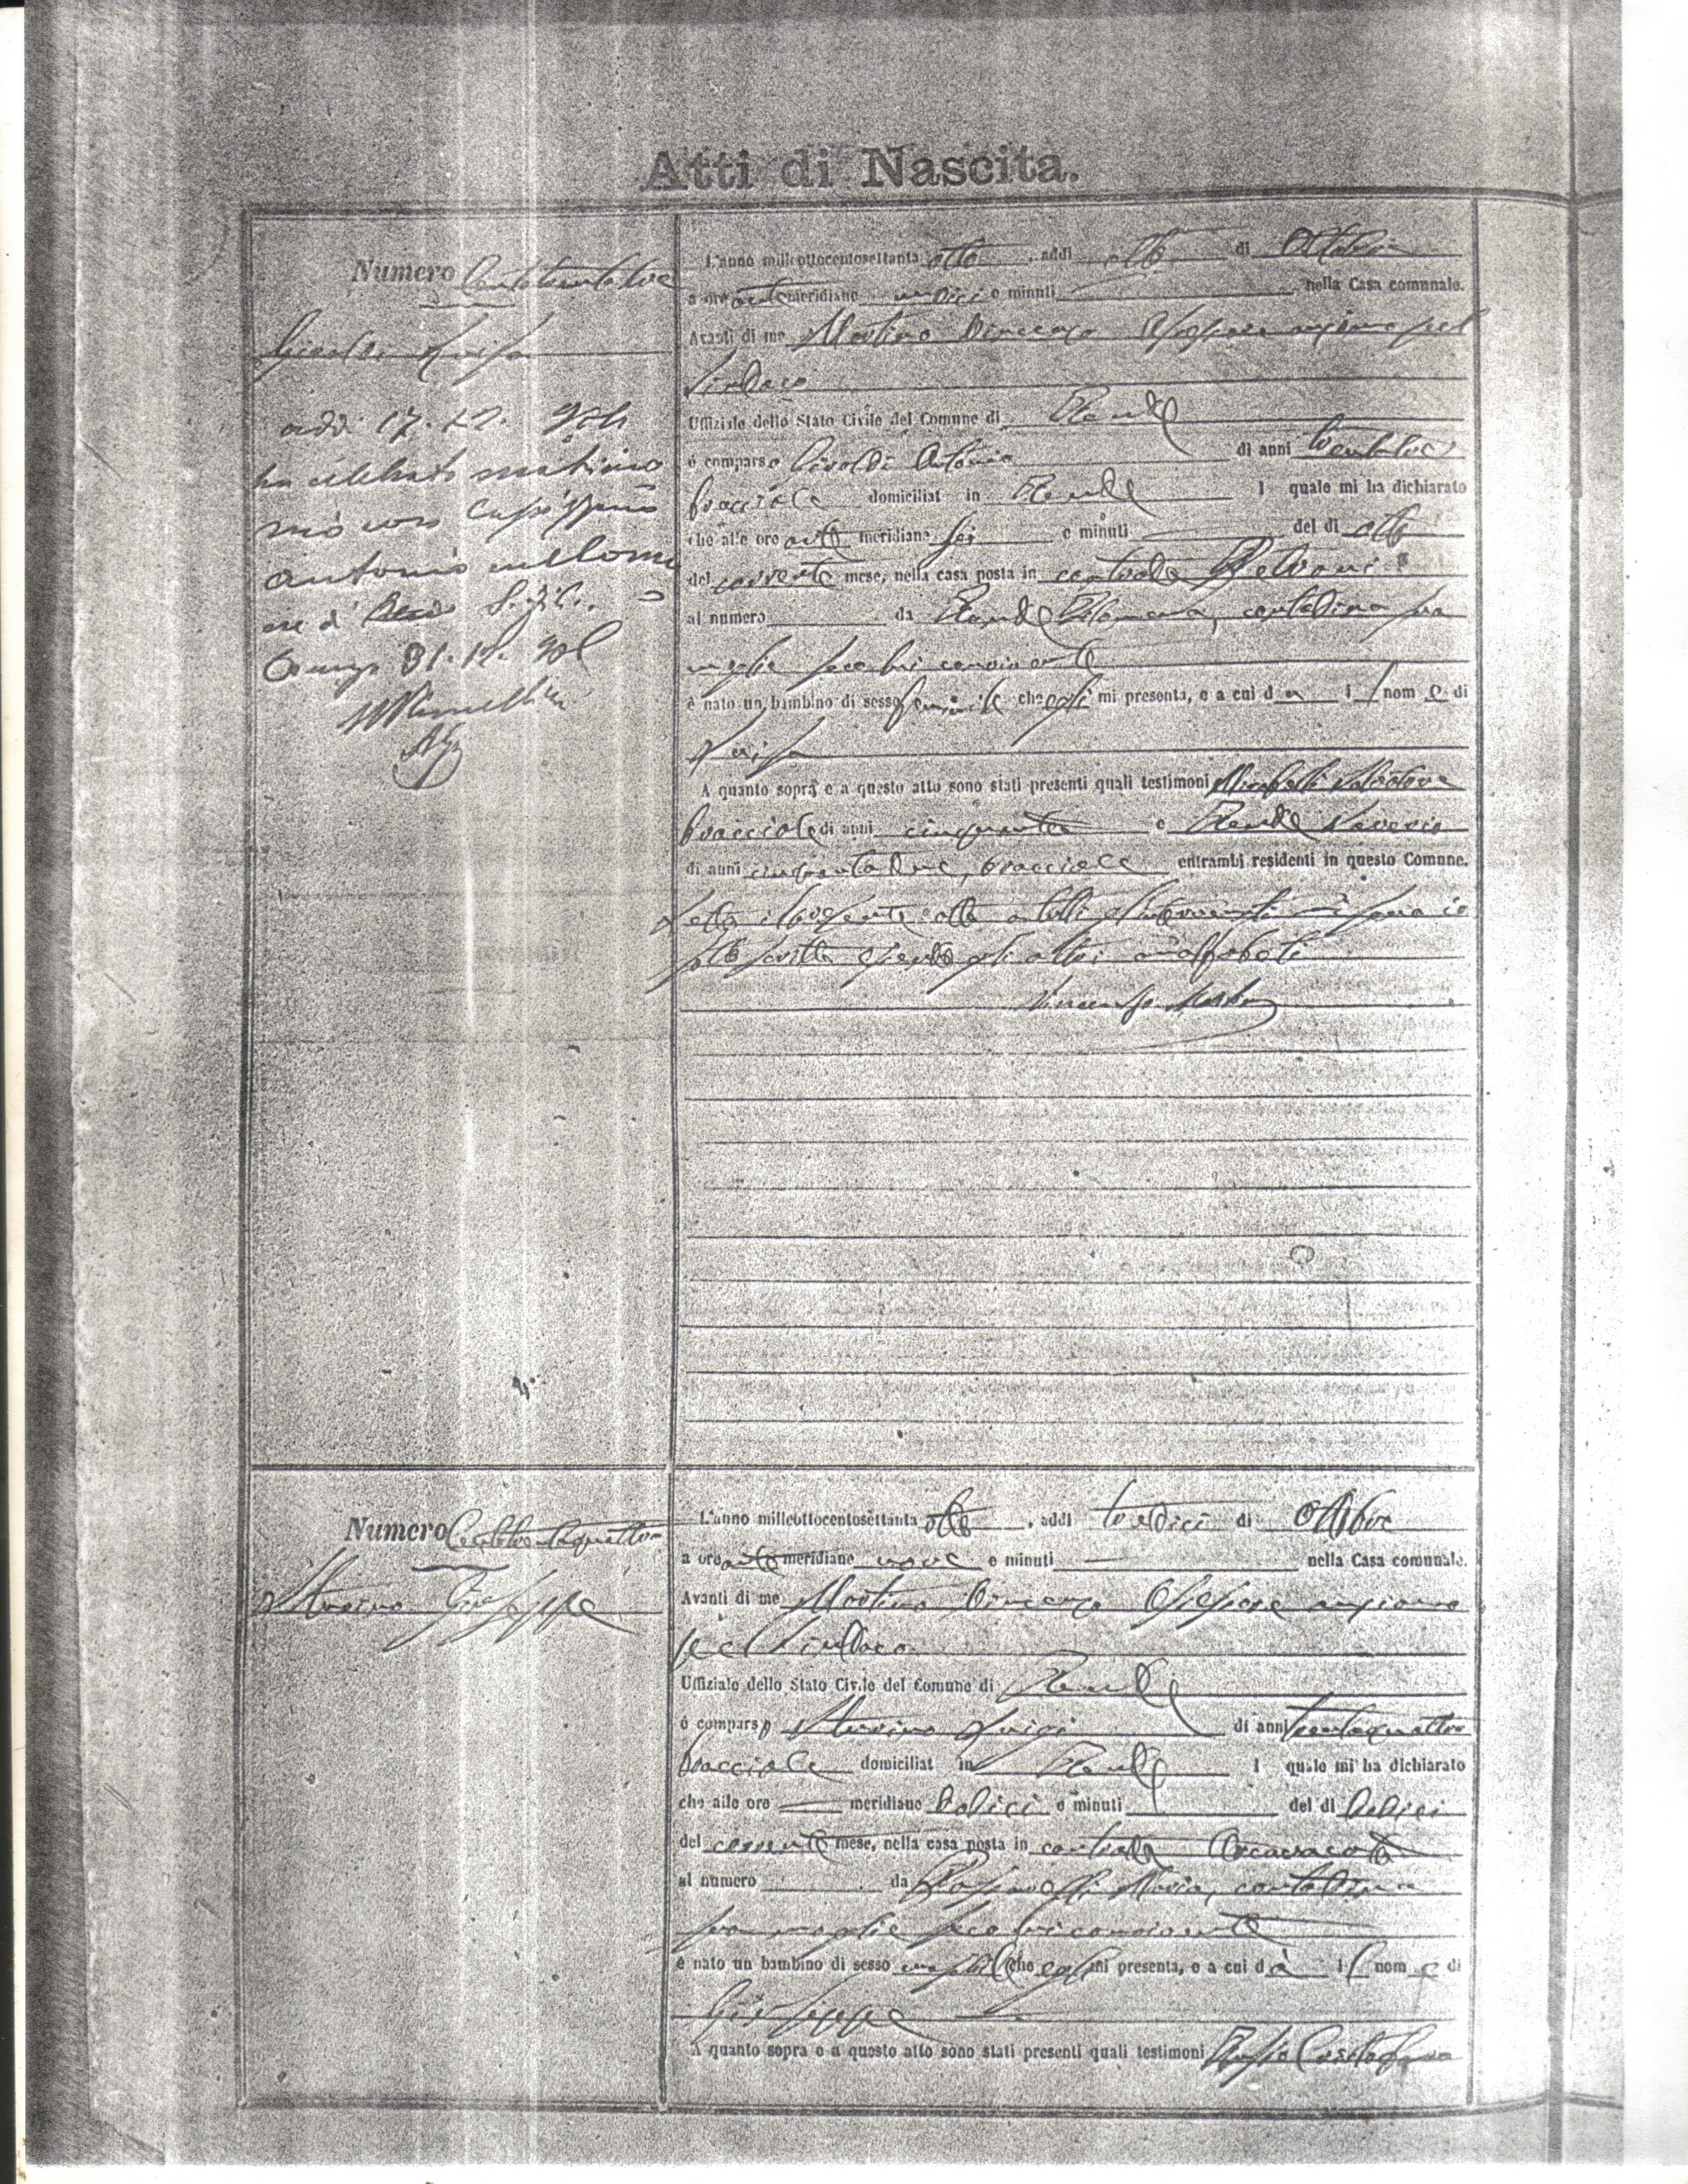 Atti di Nascita.
Numero Centotrentatre
Luisa
addì 17. 12.
ha celebrato matrimo
nio con
Antonio nel Comu
ne di S. Fili.
31. 12.
L'anno millottocentosettanta otto, addì otto di Ottobre
a ore ante meridiane undici e minuti nella Casa comunale.
Avanti di me Martino Vincenzo Assessore anziano pel
Sindaco
Uffiziale dello Stato Civile del Comune di Rende
è comparso Antonio di anni
bracciale domiciliat in Rende l quale mi ha dichiarato
che alle ore ante meridiane sei e minuti del dì otto
del corrente mese, nella casa posta in contrada
al numero da Rende Filomena, contadina sua
moglie seco lui convivente
è nato un bambino di sesso feminile che egli mi presenta, e a cui da il nome di
Luisa
A quanto sopra e a questo atto sono stati presenti quali testimoni Mirabelli Salvatore
bracciale di anni cinquanta e Rende Saverio
di anni cinquantadue, bracciale entrambi residenti in questo Comune.
Letto il presente atto a tutti gl'intervenuti si sono io
sottoscritto essendo gli altri analfabeti
Vincenzo Martino
Numero Centotrentaquattro
Giuseppe
L'anno millottocentosettanta otto, addì tredici di Ottobre
a ore ante meridiane nove e minuti nella Casa comunale.
Avanti di me Martino Vincenzo Assessore anziano
pel Sindaco
Uffiziale dello Stato Civile del Comune di Rende
è comparso Luigi di anni trentaquattro
bracciale domiciliat in Rende l quale mi ha dichiarato
che alle ore meridiane dodici e minuti del dì dodici
del corrente mese, nella casa posta in contrada
al numero da Maria, contadina
sua moglie seco lui convivente
è nato un bambino di sesso maschile che egli mi presenta, e a cui dà il nome di
Giuseppe
A quanto sopra e a questo atto sono stati presenti quali testimoni